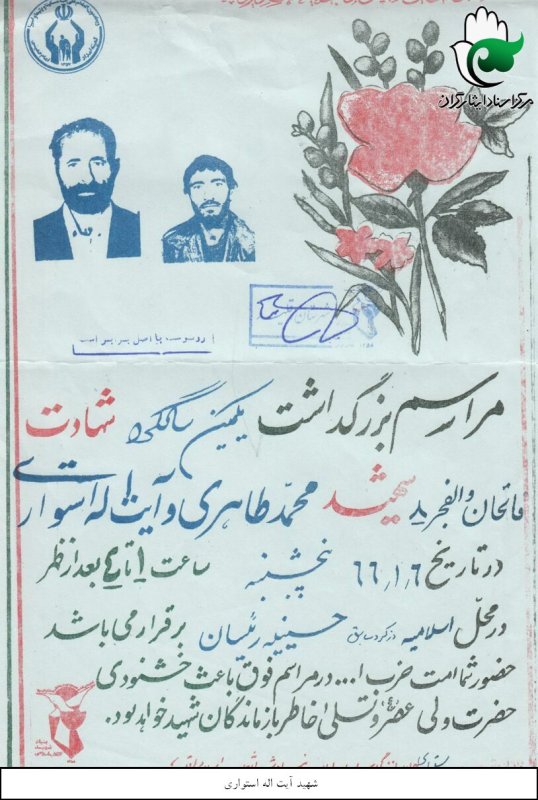 مرکز اسناد ایثارگران
رونوشت با اصل برابر است
مراسم بزرگداشت یکمین سالگرد شهادت
فاتحان والفجر ۸ شهید محمد طاهری و آیت اله استواری
در تاریخ ۶۶,۱,۶ پنجشنبه ساعت ۱ تا ۴ بعد از ظهر
در محل اسلامیه حسینیه رئیسان برقرار می باشد
حضور شما امت حزب ا... در مراسم فوق باعث خشنودی
حضرت ولی عصر و تسلی خاطر بازماندگان شهید خواهد بود.
شهید آیت اله استواری